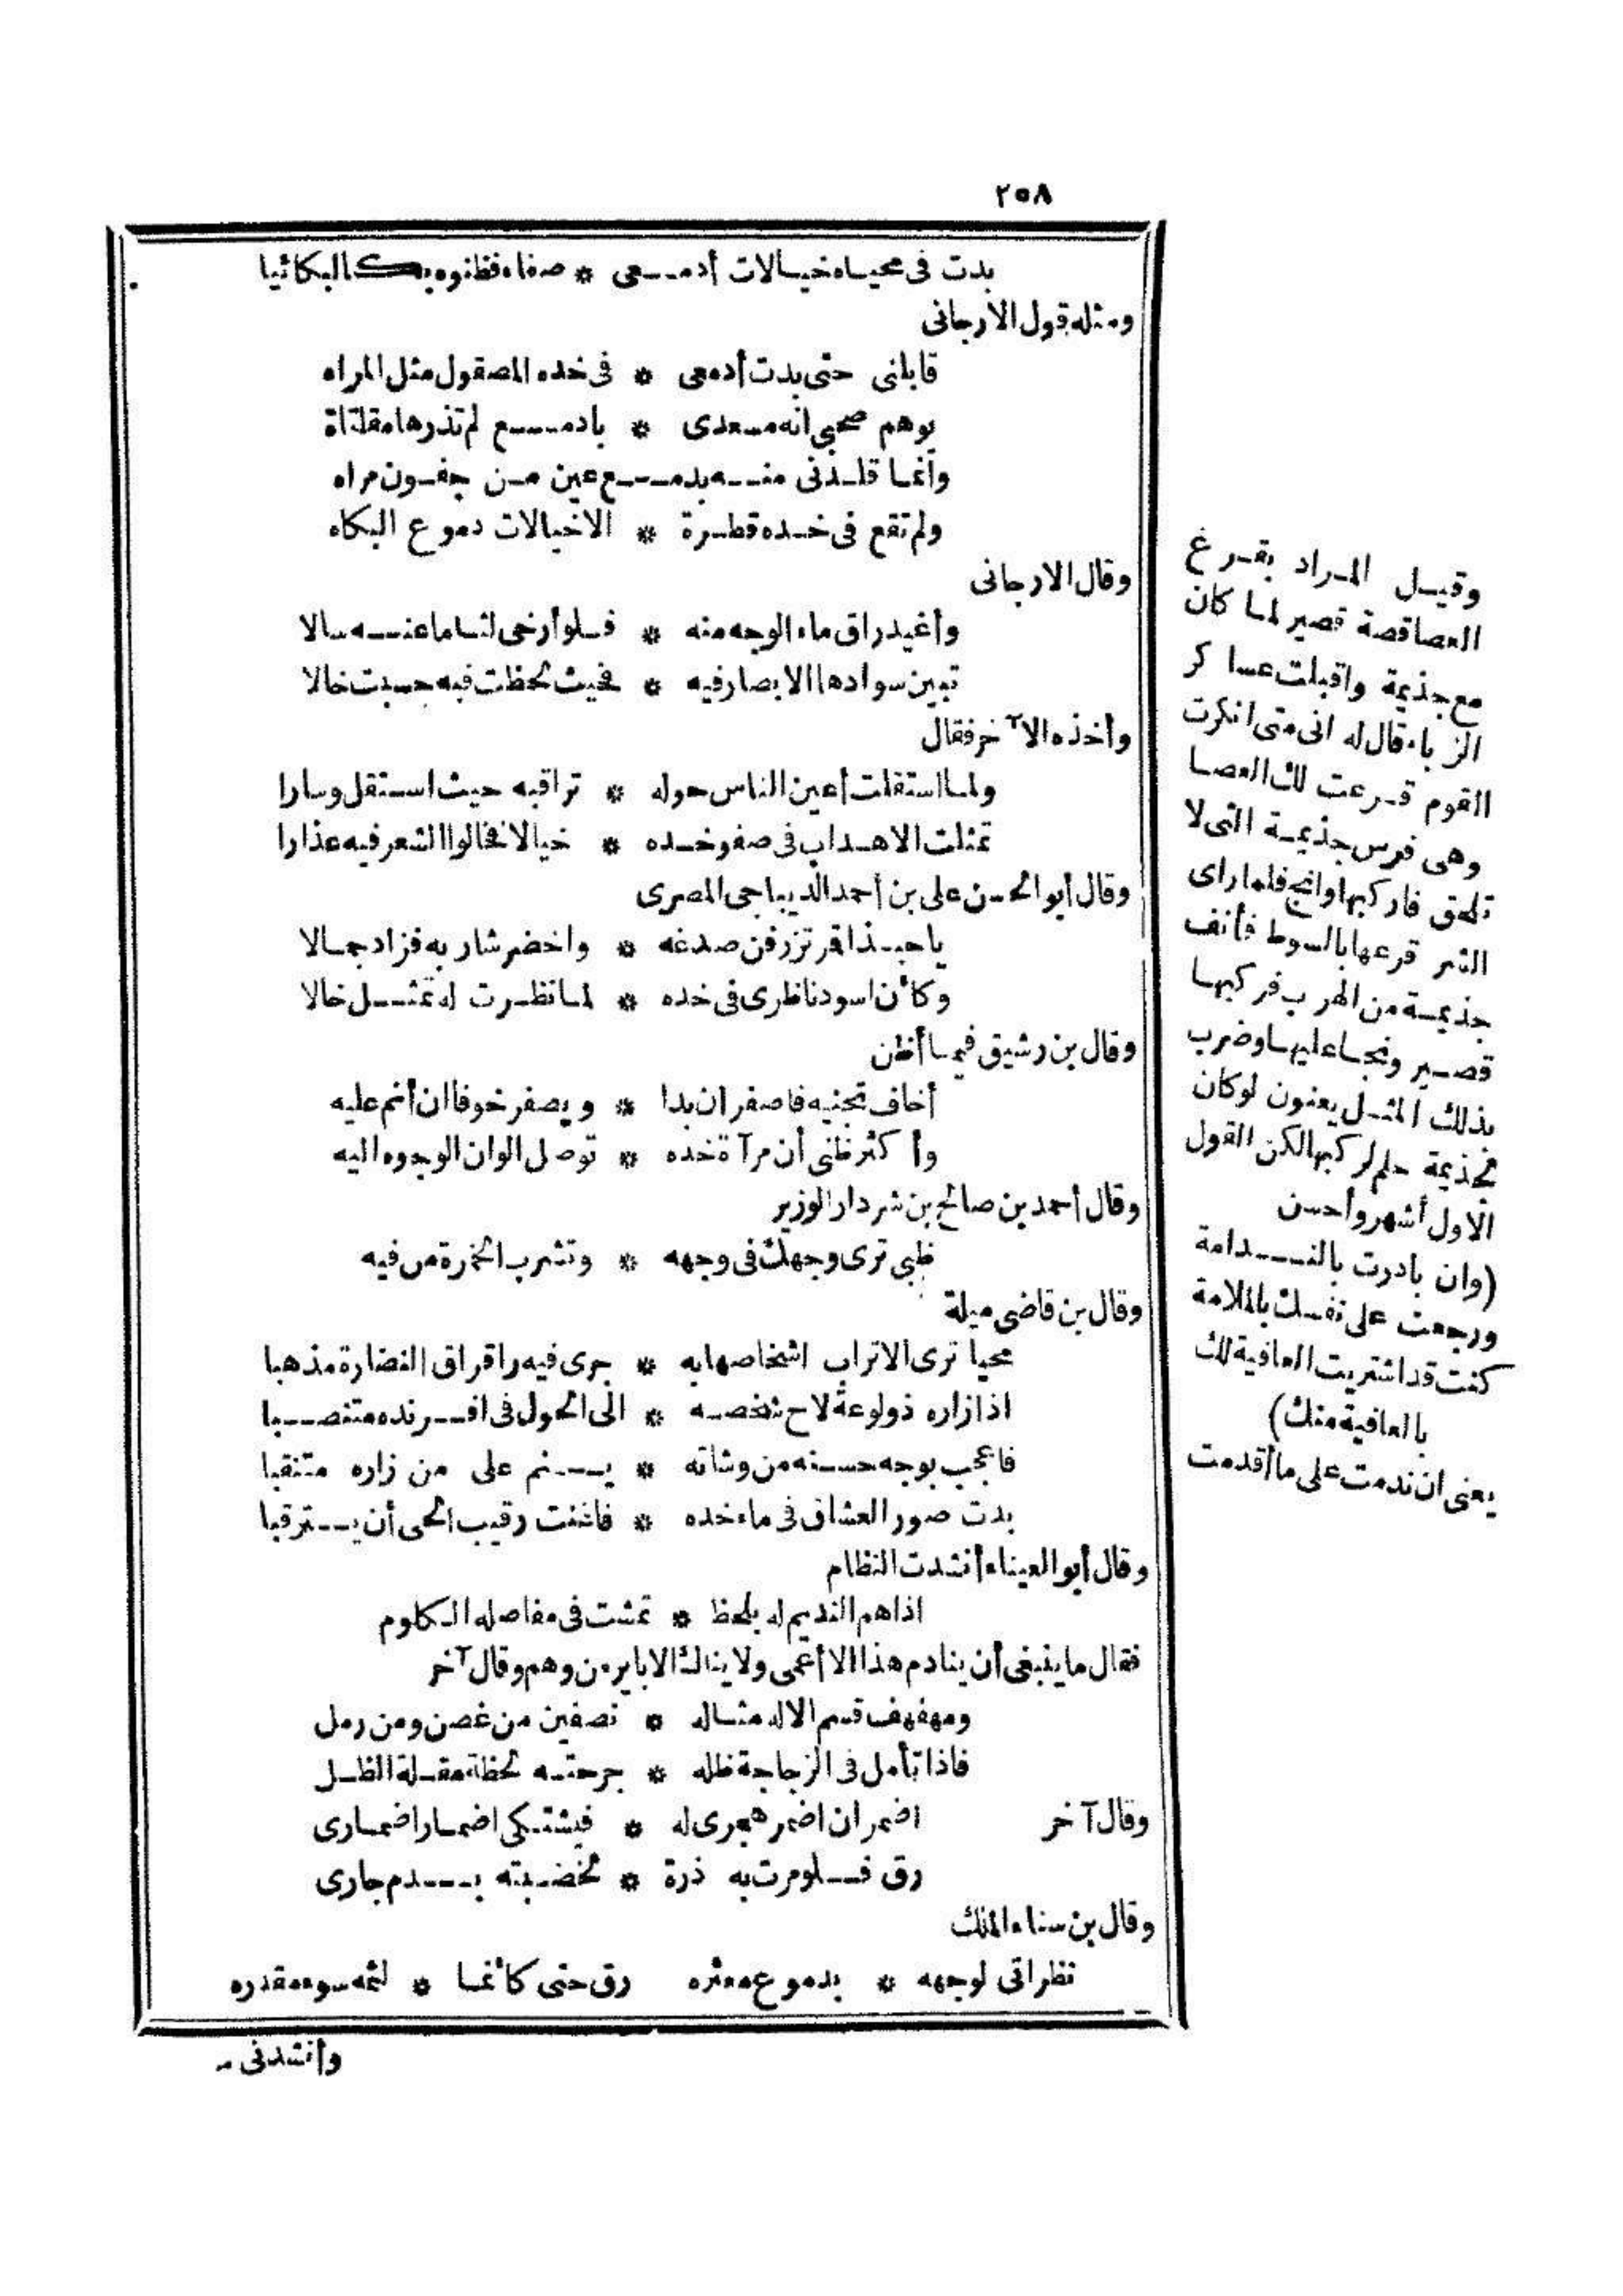 ٢٥٨
بدت فى محياه خيالات أدمعى * صفاء فظنوه بكالبكائيا
ومثله قول الأرجانى
قابلنى حتى بدت أدمعى * فى خده المصقول مثل المراه
يوهم صحبى انه مسعدى * بادمع لم تذرها مقلتاة
وانما قلدنى منه بدمع عين من جفون مراه
ولم تقع فى خده قطرة * الاخيالات دموع البكاه
وقال الارجانى
وأغيد راق ماء الوجه منه * فلو أرخى لثاما عنه سالا
تبين سوادها الابصار فيه * فحيث لحظت فيه حسبت خالا
وأخذه الآخر فقال
ولما استقلت أعين الناس حوله * تراقبه حيث استقل وسارا
تمثلت الاهداب فى صفو خده * خيالا فخالوا الشعر فيه عذارا
وقال أبو الحسن على بن أحمد الديباجى المصرى
يا حبذا قمر تزرفن صدغه * واخضر شاربه فزاد جمالا
وكأن اسود ناظرى فى خده * لما نظرت له تمثل خالا
وقال بن رشيق فيما أظن
أخاف تجنيه فاصفر ان بدا * ويصفر خوفا ان أنم عليه
وأكثر ظنى أن مرآة خده * توصل الوان الوجوه اليه
وقال أحمد بن صالح بن شردار الوزير
ظبى ترى وجهك فى وجهه * وتشرب الخمرة من فيه
وقال بن قاضى ميلة
محيا ترى الاتراب اشخاصها به * جرى فيه راقراق النضارة مذهبا
اذا زاره ذو لوعة لاح شخصه * الى الحول فى افرنده متنصبا
فاعجب بوجه حسنه من وشاته * ينم على من زاره متنقبا
بدت صور العشاق فى ماء خده * فاغنت رقيب الحى أن يترقبا
وقال أبو العيناء أنشدت النظام
اذا هم النديم له بلحظ * تمشت فى مفاصله الكلوم
فقال ما ينبغى أن ينادم هذا الا أعمى ولا يناك الا باير من وهم وقال آخر
ومهفهف قسم الاله مثاله * نصفين من غصن ومن رمل
فاذا تأمل فى الزجاجة ظله * جرحته لحظة مقلة الظل
وقال آخر اضمر ان اضمر هجرى له * فيشتكى اضمار اضمارى
رق فلو مرت به ذرة * لخضبته بدم جارى
وقال بن سناء الملك
نظراتى لوجهه * بدموع معثره رق حتى كأنما * لثمه سوء مقدره
وأنشدنى
وقيل المراد بقرع
العصا قصة قصير لما كان
مع جذيمة واقبلت عساكر
الزباء قال له انى متى انكرت
القوم قرعت لك العصا
وهى فرس جذيمة التى لا
تلحق فاركبها وانج فلما راى
الشر قرعها بالسوط فأنف
جذيمة من الهرب فركبها
قصير ونجا عليها وضرب
بذلك المثل يعنون لو كان
لجذيمة حلم لركبها لكن القول
الاول أشهر وأحسن
(وان بادرت بالندامة
ورجعت على نفسك بالملامة
كنت قد اشتريت العافية لك
بالعافية منك)
يعنى ان ندمت على ما أقدمت